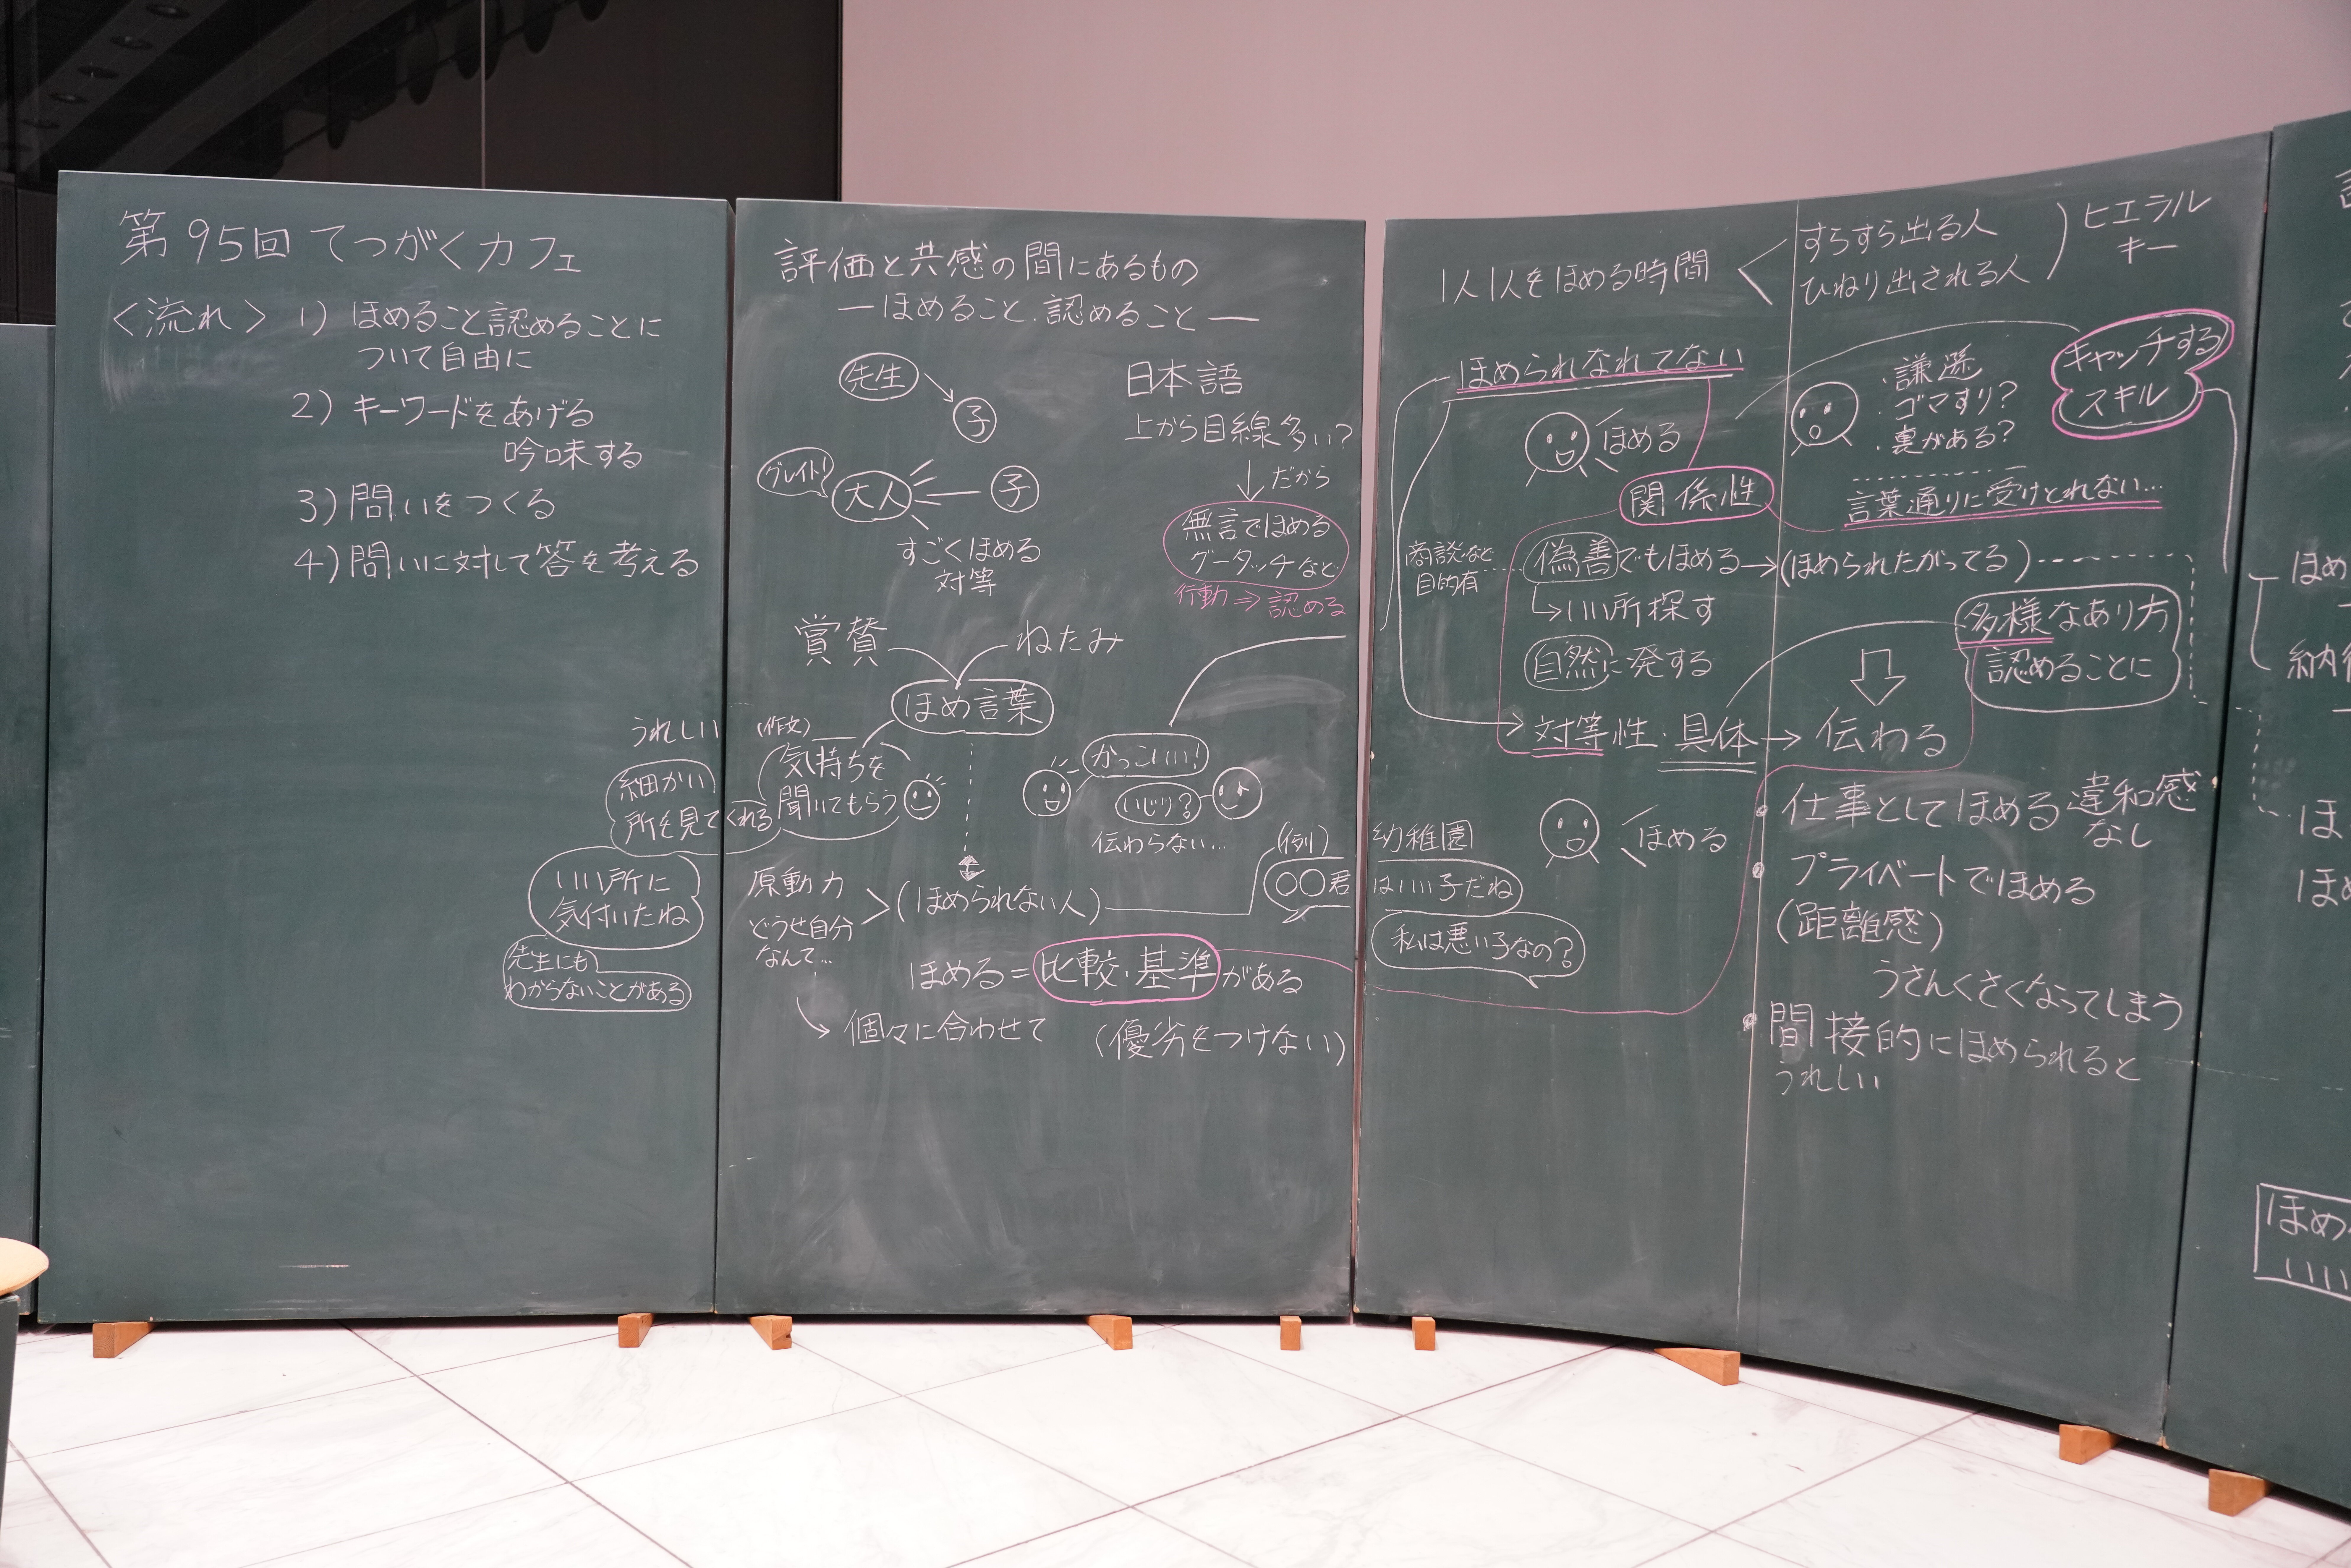 第95回 てつがくカフェ
〈流れ〉 1) ほめること認めることに
ついて自由に
2) キーワードをあげる
吟味する
3) 問いをつくる
4) 問いに対して答を考える
うれしい
細かい
所を見てくれる
いい所に
気付いたね
先生にも
わからないことがある
評価と共感の間にあるもの
―ほめること、認めること―
先生
子
グレイト!
大人
子
すごくほめる
対等
日本語
上から目線多い?
だから
無言でほめる
グータッチなど
行動⇒認める
賞賛
ねたみ
ほめ言葉
(作文)
気持ちを
聞いてもらう
かっこいい!
いじり?
伝わらない…
原動力
どうせ自分
なんて…
(ほめられない人)
(例)
〇〇君
ほめる=比較・基準がある
個々に合わせて
(優劣をつけない)
1人1人をほめる時間
すらすら出る人
ひねり出される人
ヒエラル
キー
ほめられなれてない
ほめる
・謙遜
・ゴマすり?
・裏がある?
キャッチする
スキル
関係性
言葉通りに受けとれない…
商談など
目的有
偽善でもほめる→(ほめられたがってる)
↳いい所探す
自然に発する
多様なあり方
認めることに
対等性・具体→伝わる
ほめる
幼稚園
はいい子だね
私は悪い子なの?
・仕事としてほめる違和感
なし
・プライベートでほめる
(距離感)
うさんくさくなってしまう
・間接的にほめられると
うれしい
ほめ
ほ
ほめ
ほめ